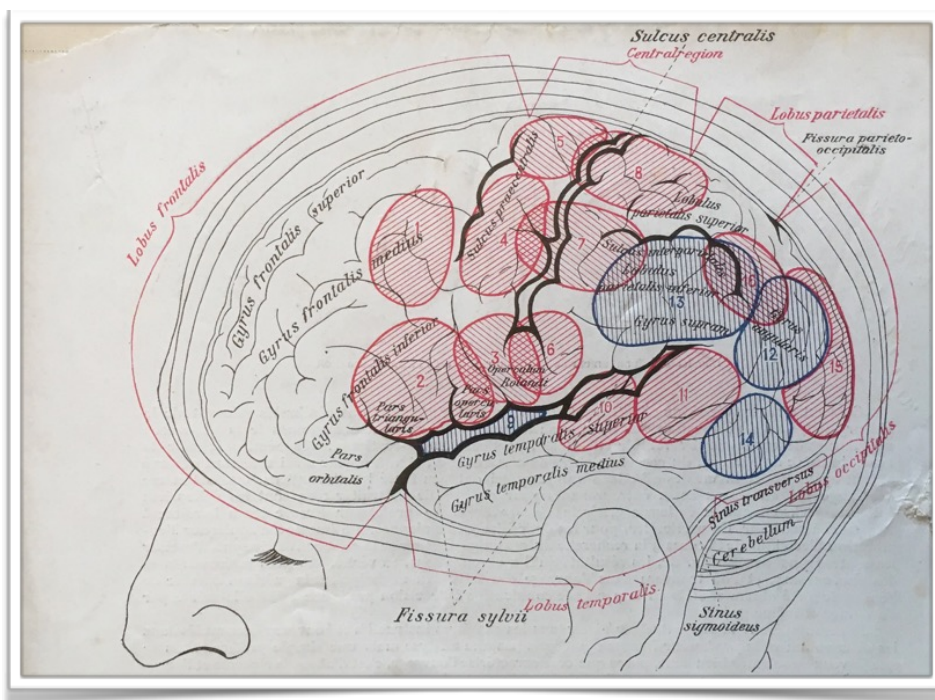 Sulcus centralis
Centralregion
Lobus parietalis
Fissura parieto-
occipitalis
Lobus frontalis
Gyrus frontalis superior
Gyrus frontalis medius
Gyrus frontalis inferior
Sulcus praecentralis
5
8
Lobulus
parietalis superior
1
4
7
Sulcus interparietalis
Lobulus
parietalis inferior
13
Gyrus supram.
16
Gyrus
angularis
12
15
2
3
6
Operculum
Rolandi
Pars
triangu-
laris
Pars
opercu-
laris
9
10
11
14
Pars
orbitalis
Gyrus temporalis superior
Gyrus temporalis medius
Sinus transversus
Lobus occipitalis
Cerebellum
Fissura sylvii
Lobus temporalis
Sinus
sigmoideus